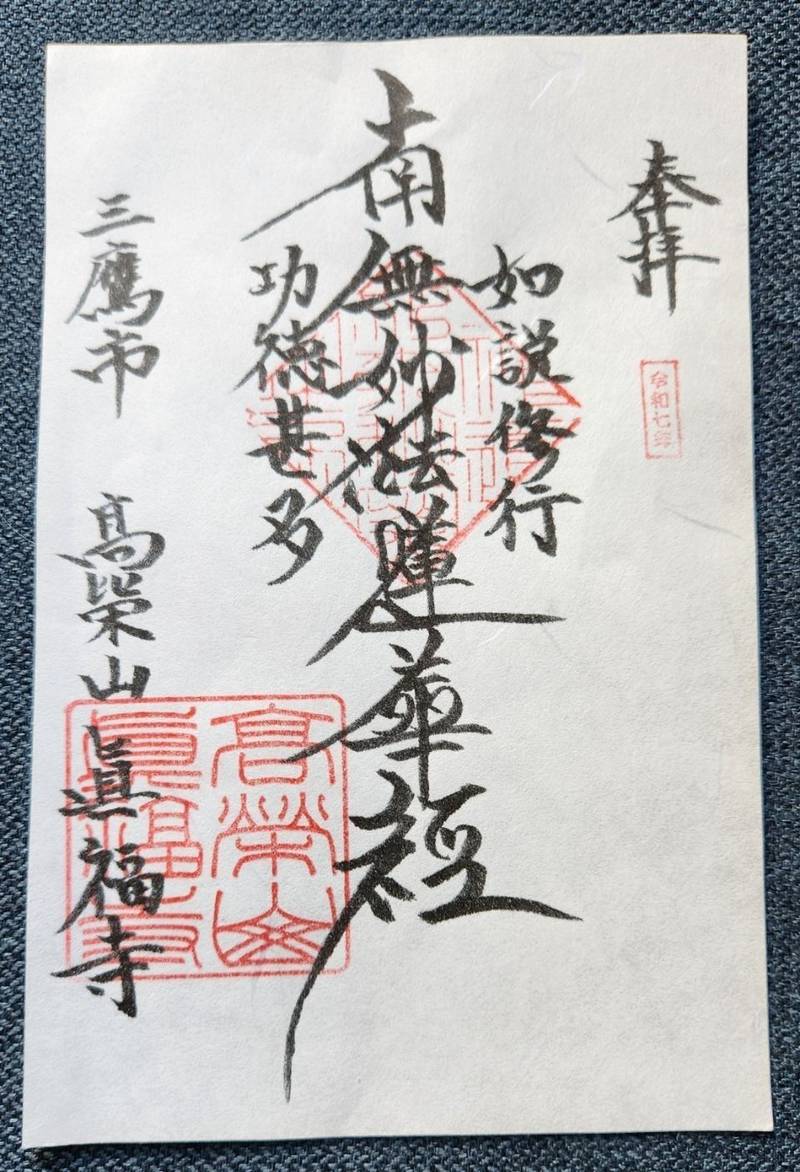 奉拝
令和七年
如説修行
南無妙法蓮華経
功徳甚多
三鷹市 高栄山 眞福寺
高榮山
眞福寺